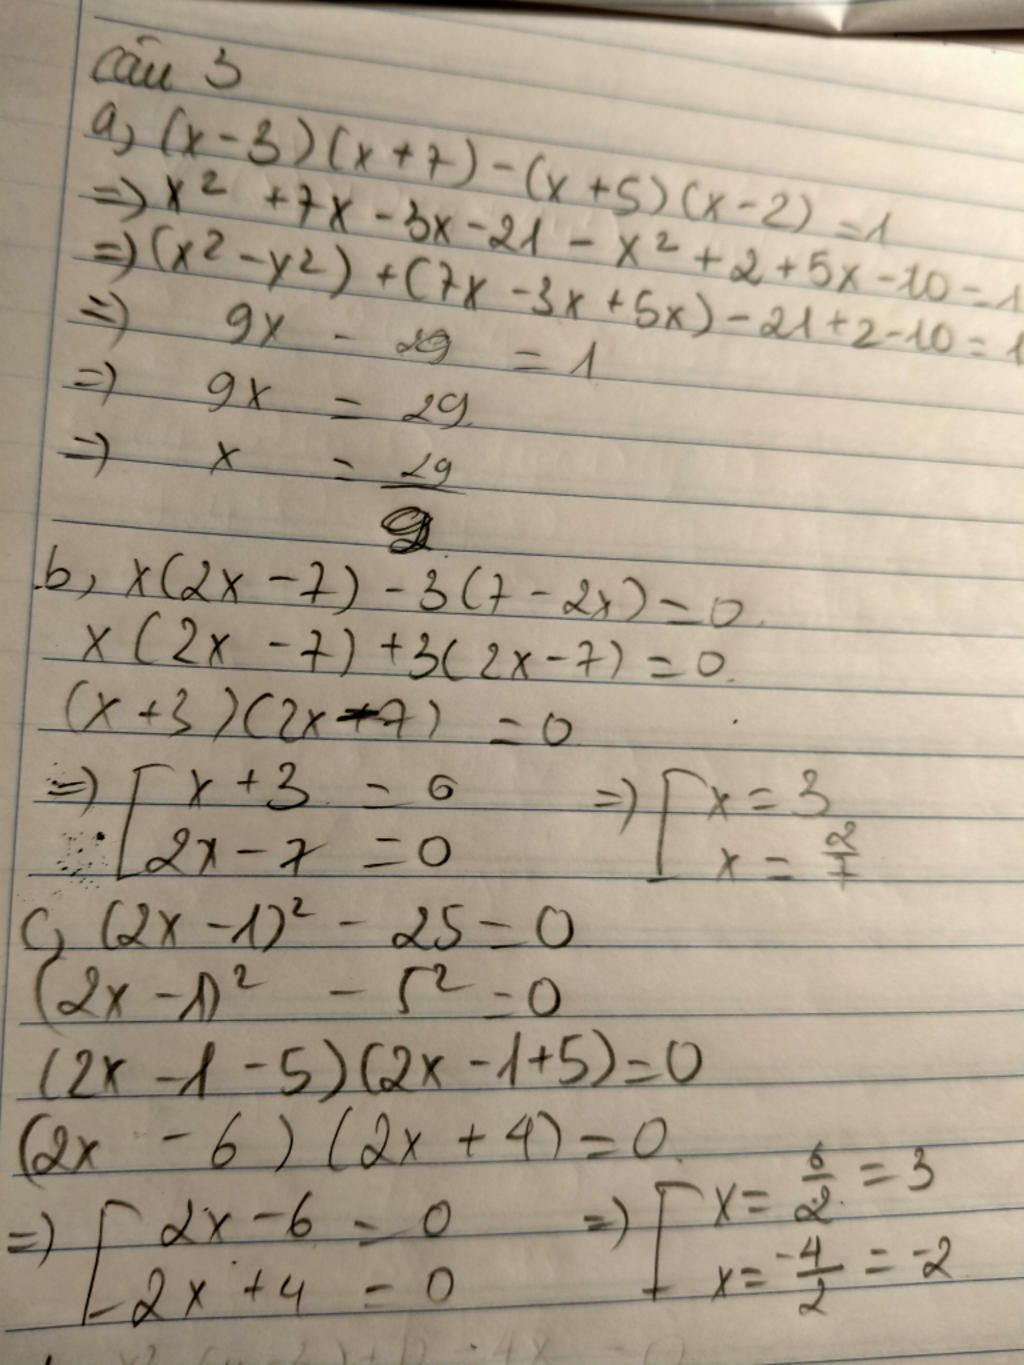 Câu 3
a, (x-3)(x+7)-(x+5)(x-2)=1
=> x² +7x-3x-21-x²+2+5x-10=1
=> (x²-y²)+(7x-3x+5x)-21+2-10=1
=> 9x - 29 = 1
=> 9x = 29
=> x = 29/9
b, x(2x-7)-3(7-2x)=0
x(2x-7)+3(2x-7)=0
(x+3)(2x-7) =0
=> [ x+3 = 0 => [ x = 3
2x-7 = 0 x = 2/7
c, (2x-1)² - 25=0
(2x-1)² - 5²=0
(2x-1-5)(2x-1+5)=0
(2x-6)(2x+4)=0
=> [ 2x-6 = 0 => [ x = 6/2 = 3
2x+4 = 0 x = -4/2 = -2